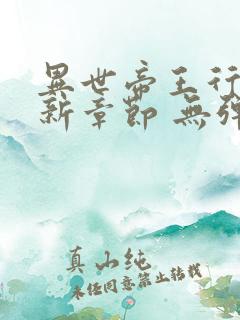 異世帝王行
新章節 無彈
真山純
未经同意禁止转载